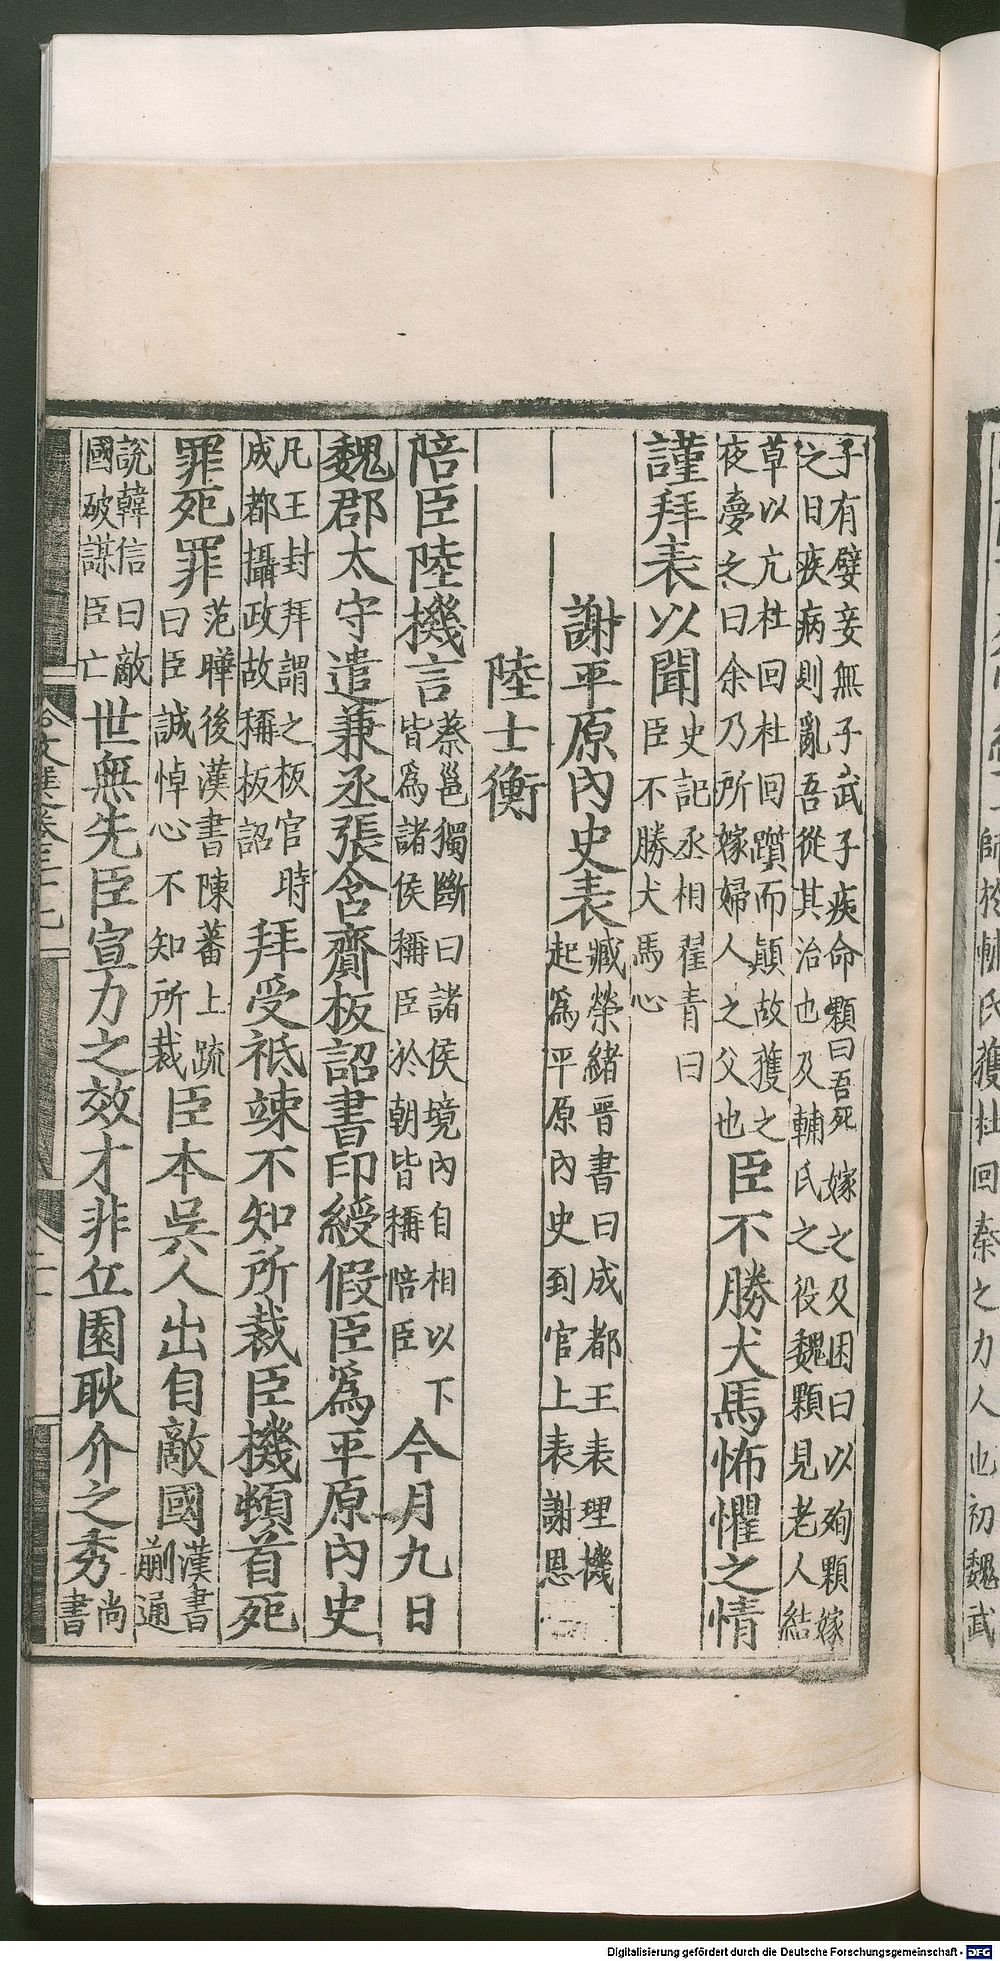 師於輔氏獲杜回秦之力人也初魏武
子有嬖妾無子武子疾命顆曰吾死嫁之及困曰以殉顆嫁
之曰疾病則亂吾從其治也及輔氏之役魏顆見老人結
草以亢杜回杜回躓而顛故獲之夜夢之曰余乃所嫁婦人之父也臣不勝犬馬怖懼之情
謹拜表以聞史記丞相翟青曰臣不勝犬馬心
謝平原內史表臧榮緒晉書曰成都王表理機起爲平原內史到官上表謝恩
陸士衡
陪臣陸機言蔡邕獨斷曰諸侯境內自相以下皆爲諸侯稱臣於朝皆稱陪臣今月九日
魏郡太守遣兼丞張含齎板詔書印綬假臣爲平原內史
凡王封拜謂之板官時成都攝政故稱板詔拜受祗竦不知所裁臣機頓首死
罪死罪范曄後漢書陳蕃上疏曰臣誠悼心不知所裁臣本吳人出自敵國漢書蒯通
說韓信曰敵國破謀臣亡世無先臣宣力之效才非丘園耿介之秀尚書
Digitalisierung gefördert durch die Deutsche Forschungsgemeinschaft - DFG